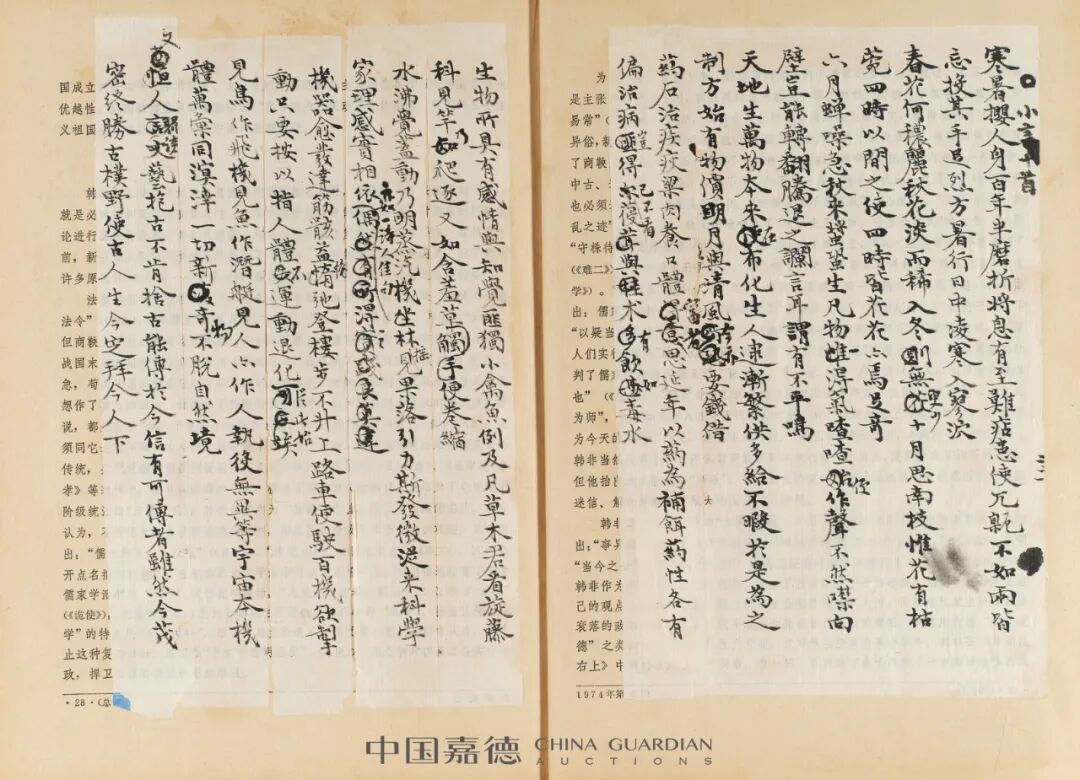 小言 首
寒暑攖人身百年半磨折將息有至難 恙使冗親不如兩皆
忘投其手足烈方暑行日中凌寒入寥
春花何穠麗秋花淡而稀入冬則無花十月思南枝惟花有枯
菀四時以間之使四時皆花花亦焉足奇
六月蟬噪急秋來蛩蛩生凡物惟得氣喳喳始作聲不然噤向
壁豈能轉翻騰退之讕言耳謂有不平鳴
天地生萬物本來使布化生人逮漸繁供多給不暇於是為之
制方始有物價明月與清風 要錢借
藥石治疾疢粱肉養口體 思延年以藥為補餌藥性各有
偏治病匪得已 草與 朮 飲 毒水
生物所具有感情與知覺匪獨小禽魚例及凡草木君看旋藤
科見竿乃爬逐又如含羞草觸手便卷縮
水沸覺蓋動乃明蒸汽機坐林見果落引力斯發微從來科學
家理感實相依偶
亦如詩人
機器愈發達筋骸益惰弛登樓步不升上路車使駛百機欲掣
動只要按以指人體不運動退化
見鳥作飛機見魚作潛艇見人亦作人執後無罪等宇宙本機
體萬彙同溟涬一切新奇物不脫自然境
恒人 文藝抱古不肯捨古能傳於今信有可傳者雖然今茂
密終勝古樸野使古人生今定拜今人下
为
是主张
易常”（
异俗，新
了商鞅
中古、
也必须
必之迹
“守株待
（《难二》
学》。
出：儒
“以疑当
人们实行
判了儒
也”（《
为师”，
为今天的
韩非当
但他抬
迷信、解
韩非
出：“事异
“当今之
韩非作为
己的观点
衰落的政
德”之类
右上》中
1974年第
国成立
优越性
义祖国
韩
就是必
论进行
前，新
许多原
法
法令”
但商鞅
战国末
急，荀
想作了
说，都
须同它
传统，
孝》等
阶级统
认为，
出：“儒
开点名
儒家学
（《诡使》）
学”的特
止这种复
政，捍卫
·28·（总
中国嘉德 CHINA GUARDIAN
AUCTIONS